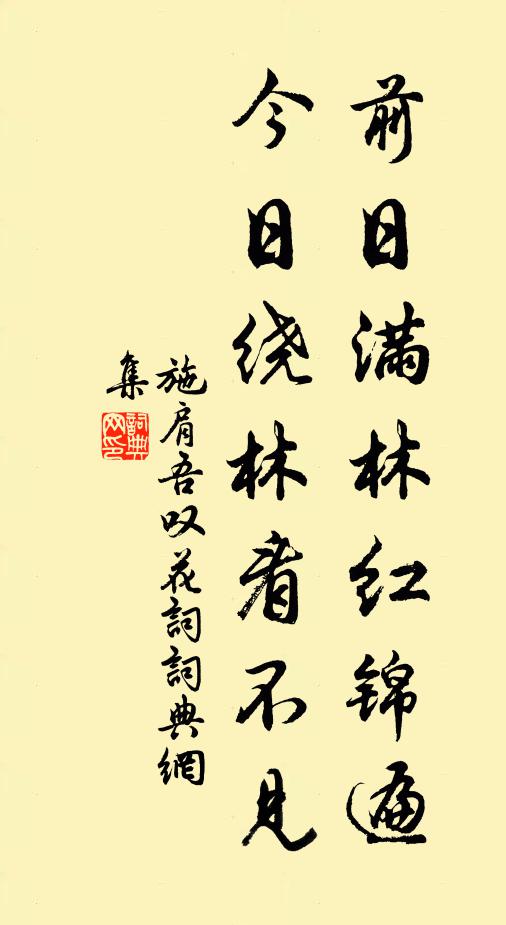 前日满林红锦遍
今日绕林看不见
施肩吾叹花詞詞典網
集
詞典网印